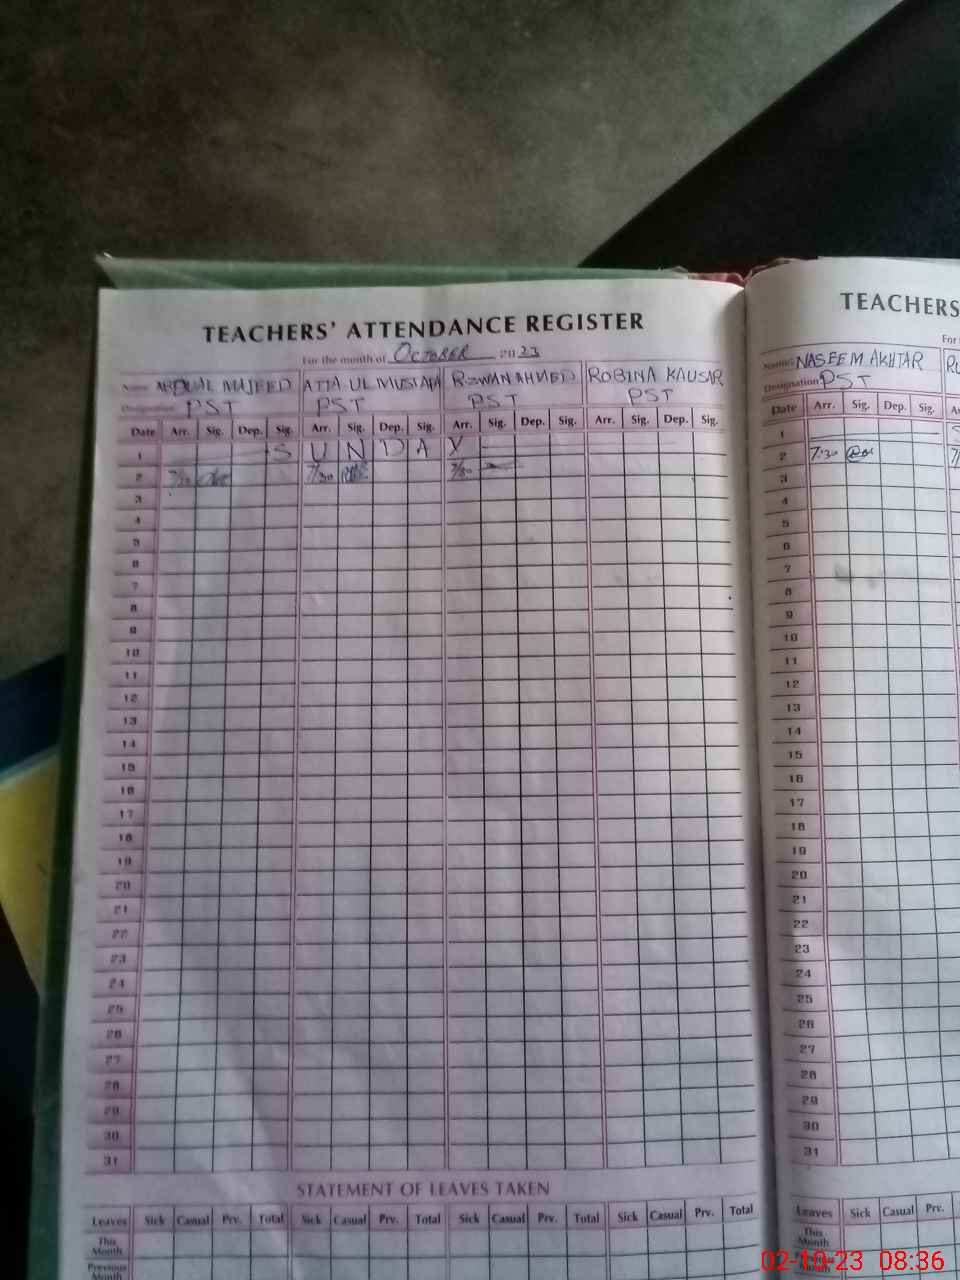 TEACHERS' ATTENDANCE REGISTER
For the month of OCTOBER 2023
Name ABDUAL MAJEED ATTA UL MUSTAFA RIZWAN AHMED ROBINA KAUSAR
Designation PST PST PST PST
Date Arr. Sig. Dep. Sig. Arr. Sig. Dep. Sig. Arr. Sig. Dep. Sig. Arr. Sig. Dep. Sig.
1 S U N D A Y
2 7/30 7/30 7/30
3
4
5
6
7
8
9
10
11
12
13
14
15
16
17
18
19
20
21
22
23
24
25
26
27
28
29
30
31
STATEMENT OF LEAVES TAKEN
Leaves Sick Casual Prv. Total Sick Casual Prv. Total Sick Casual Prv. Total Sick Casual Prv. Total
This
Month
Previous
Month
TEACHERS
For
Name NASEEM AKHTAR
Designation PST
Date Arr. Sig. Dep. Sig.
1
2 7:30
3
4
5
6
7
8
9
10
11
12
13
14
15
16
17
18
19
20
21
22
23
24
25
26
27
28
29
30
31
Leaves Sick Casual Prv.
This
Month
02-10-23 08:36